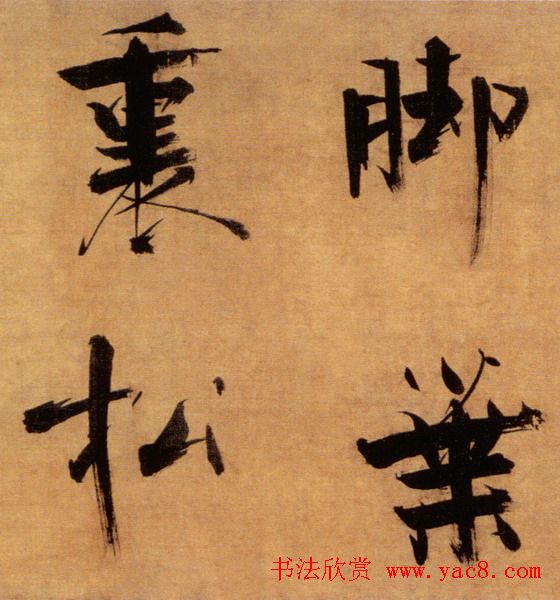 脚葉
裏松
书法欣赏 www.yac8.com